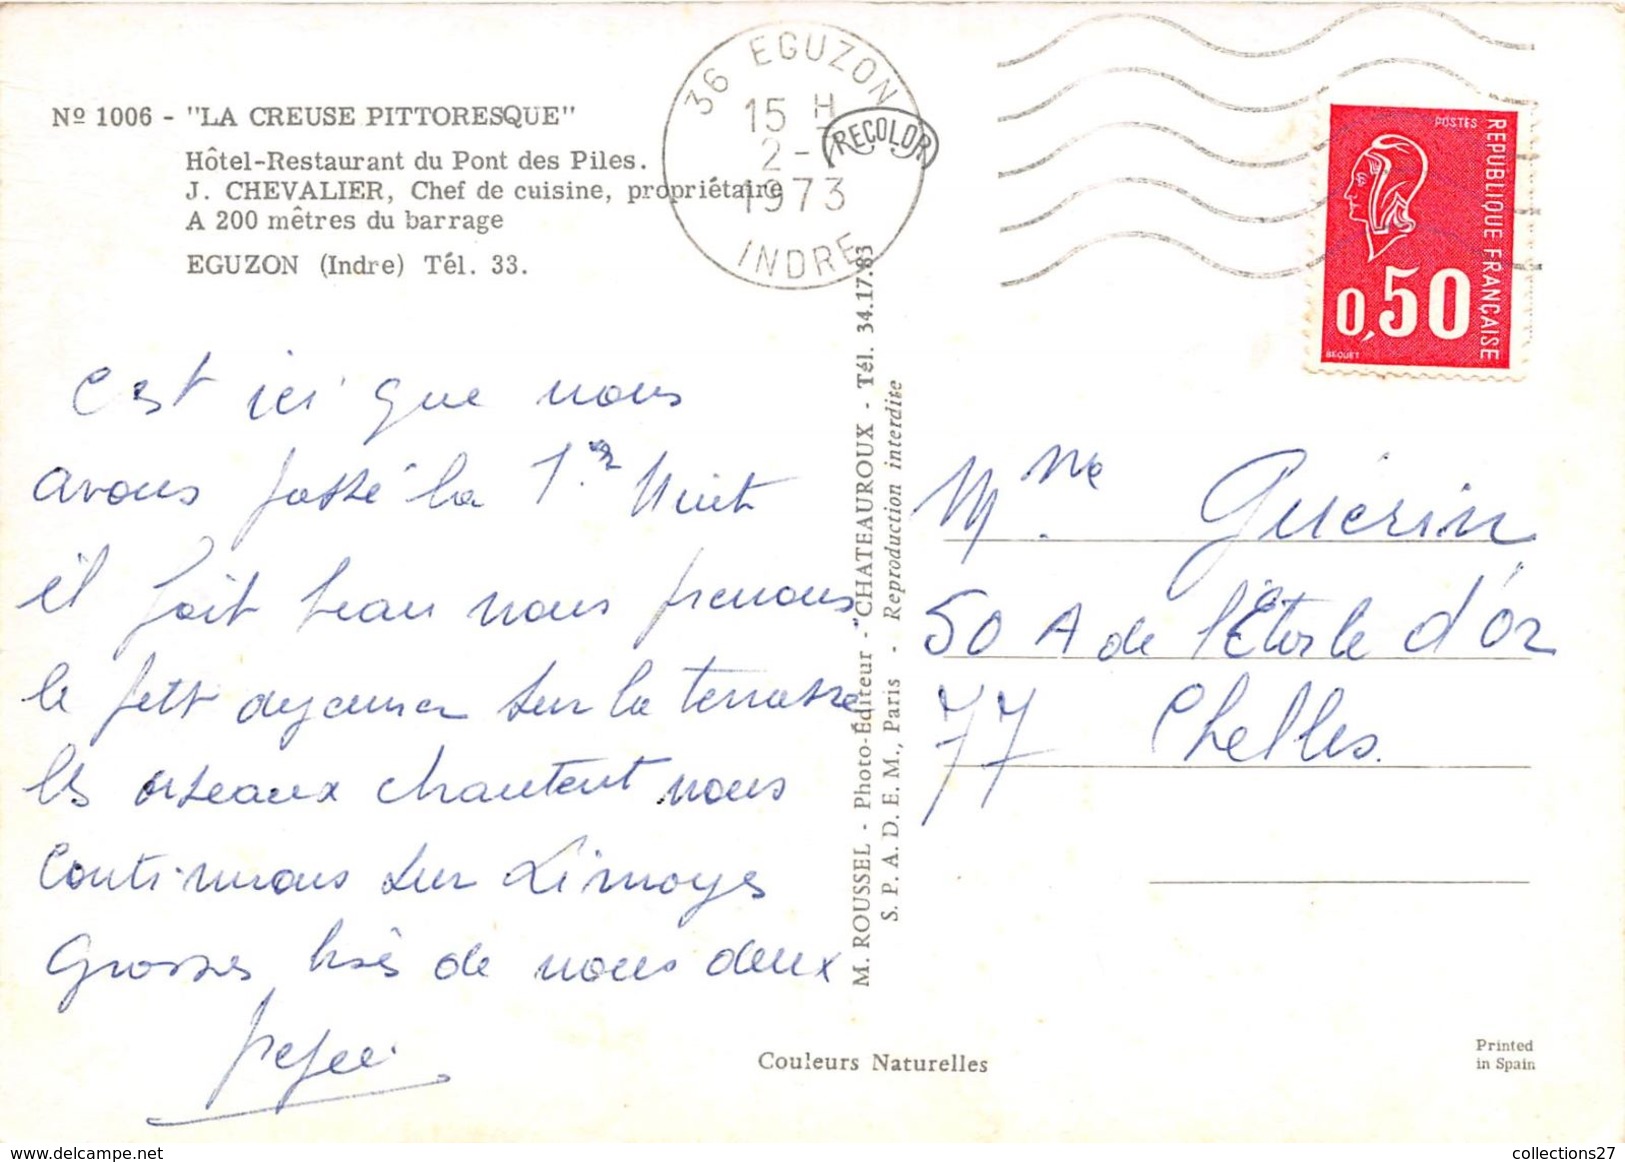 Nº 1006 - "LA CREUSE PITTORESQUE"
Hôtel-Restaurant du Pont des Piles.
J. CHEVALIER, Chef de cuisine, propriétaire
A 200 mêtres du barrage
EGUZON (Indre) Tél. 33.
36 EGUZON
15 H
2-
1973
INDRE
RECOLOR
POSTES
REPUBLIQUE FRANÇAISE
0,50
BEQUET
C'est ici que nous
avons passé la 1er Nuit
il fait beau nous prenons
le petit dejeuner sur la terrasse
les oiseaux chantent nous
continuons sur Limoges
Grosses bises de nous deux
M. ROUSSEL - Photo-Éditeur - "CHATEAUROUX - Tél. 34.17.83
S. P. A. D. E. M., Paris - Reproduction interdite
Mme Guérin
50 A de l'Etoile d'Or
77 Chelles.
Couleurs Naturelles
Printed
in Spain
https://www.delcampe.net
collections27